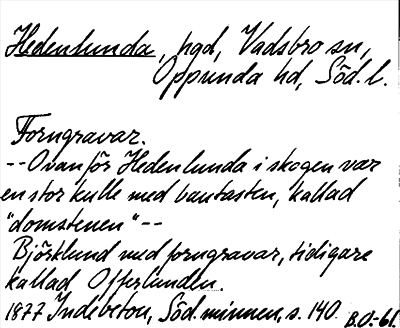 Hedenlunda, hgd, Vadsbro sn,
Oppunda hd, Söd. l.
Forngravar.
-- Ovanför Hedenlunda i skogen var
en stor kulle med bautasten, kallad
"domstenen" --
Björklund med forngravar, tidigare
kallad Offerlunden.
1877 Indebetou, Söd. minnen, s. 140. B.O:-61.